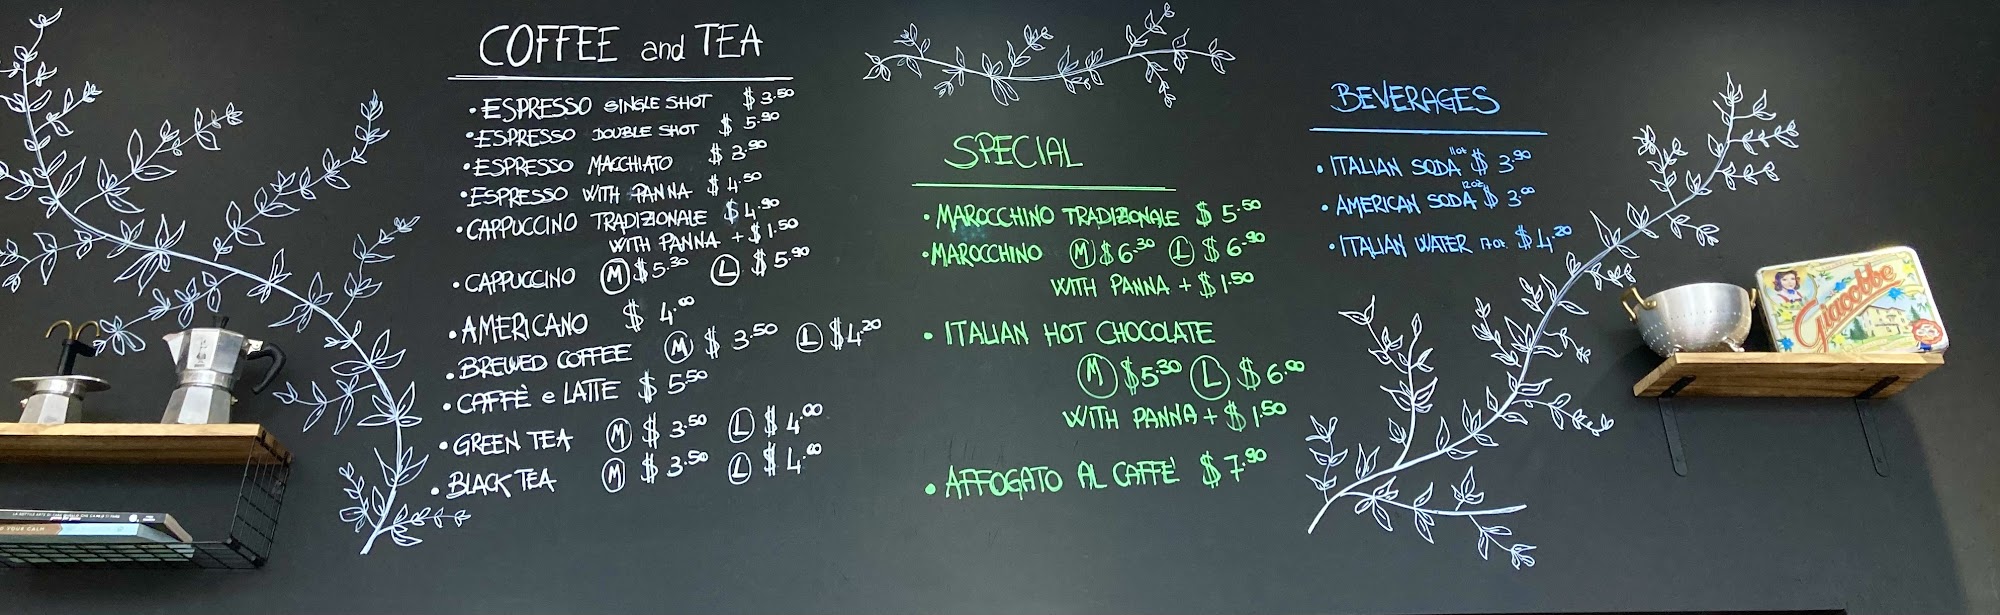 COFFEE and TEA
• ESPRESSO SINGLE SHOT $3.50
• ESPRESSO DOUBLE SHOT $5.90
• ESPRESSO MACCHIATO $3.90
• ESPRESSO WITH PANNA $4.50
• CAPPUCCINO TRADIZIONALE $4.90
WITH PANNA + $1.50
• CAPPUCCINO M $5.30 L $5.90
• AMERICANO $4.00
• BREWED COFFEE M $3.50 L $4.20
• CAFFÈ e LATTE $5.50
• GREEN TEA M $3.50 L $4.00
• BLACK TEA M $3.50 L $4.00
SPECIAL
• MAROCCHINO TRADIZIONALE $5.50
• MAROCCHINO M $6.30 L $6.90
WITH PANNA + $1.50
• ITALIAN HOT CHOCOLATE
M $5.30 L $6.00
WITH PANNA + $1.50
• AFFOGATO AL CAFFE' $7.90
BEVERAGES
• ITALIAN SODA 11oz $3.90
• AMERICAN SODA 12oz $3.00
• ITALIAN WATER 17oz. $4.20
Giacobbe
YOUR CALM